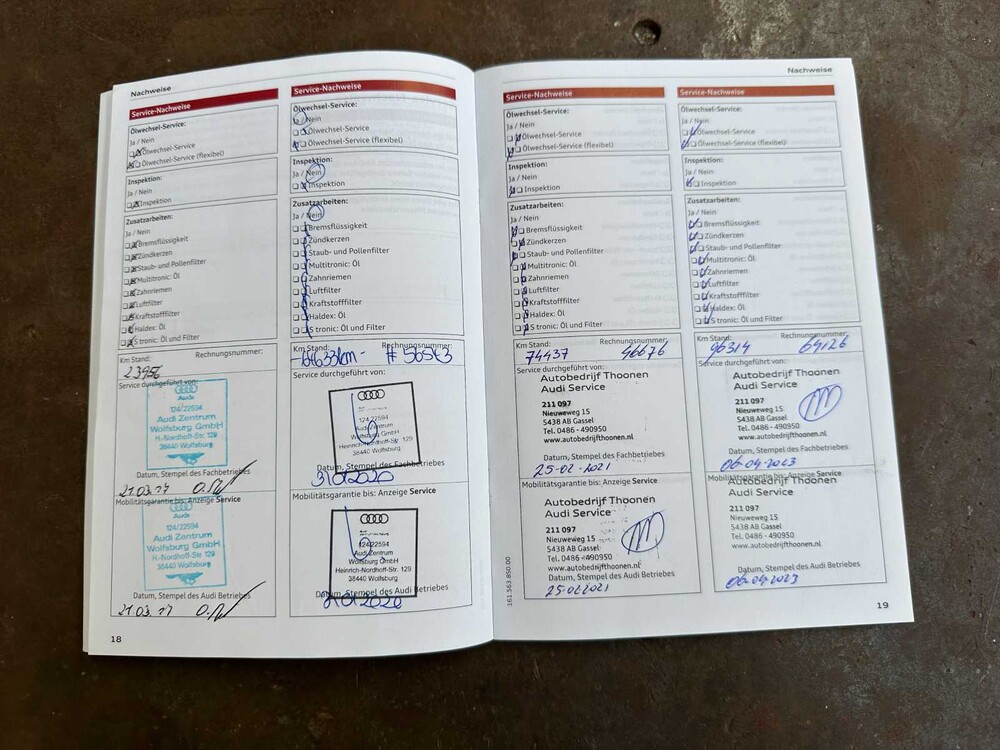 Nachweise
Service-Nachweise
Ölwechsel-Service:
Ja / Nein
Ölwechsel-Service
Ölwechsel-Service (flexibel)
Inspektion:
Ja / Nein
Inspektion
Zusatzarbeiten:
Ja / Nein
Bremsflüssigkeit
Zündkerzen
Staub- und Pollenfilter
Multitronic: Öl
Zahnriemen
Luftfilter
Kraftstofffilter
Haldex: Öl
S tronic: Öl und Filter
Km Stand: Rechnungsnummer:
Service durchgeführt von:
Audi
124/22594
Audi Zentrum
Wolfsburg GmbH
H.-Nordhoff-Str. 129
38440 Wolfsburg
Datum, Stempel des Fachbetriebes
21.03.17
Mobilitätsgarantie bis: Anzeige Service
Audi
124/22594
Audi Zentrum
Wolfsburg GmbH
H.-Nordhoff-Str. 129
38440 Wolfsburg
Datum, Stempel des Audi Betriebes
21.03.17
18
Service-Nachweise
Ölwechsel-Service:
Ja / Nein
Ölwechsel-Service
Ölwechsel-Service (flexibel)
Inspektion:
Ja / Nein
Inspektion
Zusatzarbeiten:
Ja / Nein
Bremsflüssigkeit
Zündkerzen
Staub- und Pollenfilter
Multitronic: Öl
Zahnriemen
Luftfilter
Kraftstofffilter
Haldex: Öl
S tronic: Öl und Filter
Km Stand: Rechnungsnummer:
Service durchgeführt von:
124/22594
Audi Zentrum
Wolfsburg GmbH
Heinrich-Nordhoff-Str. 129
38440 Wolfsburg
Datum, Stempel des Fachbetriebes
Mobilitätsgarantie bis: Anzeige Service
124/22594
Audi Zentrum
Wolfsburg GmbH
Heinrich-Nordhoff-Str. 129
38440 Wolfsburg
Datum, Stempel des Audi Betriebes
Service-Nachweise
Ölwechsel-Service:
Ja / Nein
Ölwechsel-Service
Ölwechsel-Service (flexibel)
Inspektion:
Ja / Nein
Inspektion
Zusatzarbeiten:
Ja / Nein
Bremsflüssigkeit
Zündkerzen
Staub- und Pollenfilter
Multitronic: Öl
Zahnriemen
Luftfilter
Kraftstofffilter
Haldex: Öl
S tronic: Öl und Filter
Km Stand: Rechnungsnummer:
74437 46676
Service durchgeführt von:
Autobedrijf Thoonen
Audi Service
211 097
Nieuweweg 15
5438 AB Gassel
Tel. 0486 - 490950
www.autobedrijfthoonen.nl
Datum, Stempel des Fachbetriebes
25-02-2021
Mobilitätsgarantie bis: Anzeige Service
Autobedrijf Thoonen
Audi Service
211 097
Nieuweweg 15
5438 AB Gassel
Tel. 0486 - 490950
www.autobedrijfthoonen.nl
Datum, Stempel des Audi Betriebes
25-02-2021
161.563.850.00
Nachweise
Service-Nachweise
Ölwechsel-Service:
Ja / Nein
Ölwechsel-Service
Ölwechsel-Service (flexibel)
Inspektion:
Ja / Nein
Inspektion
Zusatzarbeiten:
Ja / Nein
Bremsflüssigkeit
Zündkerzen
Staub- und Pollenfilter
Multitronic: Öl
Zahnriemen
Luftfilter
Kraftstofffilter
Haldex: Öl
S tronic: Öl und Filter
Km Stand: Rechnungsnummer:
96314 64126
Service durchgeführt von:
Autobedrijf Thoonen
Audi Service
211 097
Nieuweweg 15
5438 AB Gassel
Tel. 0486 - 490950
www.autobedrijfthoonen.nl
Datum, Stempel des Fachbetriebes
06-04-2023
Mobilitätsgarantie bis: Anzeige Service
Autobedrijf Thoonen
Audi Service
211 097
Nieuweweg 15
5438 AB Gassel
Tel. 0486 - 490950
www.autobedrijfthoonen.nl
Datum, Stempel des Audi Betriebes
06-04-2023
19